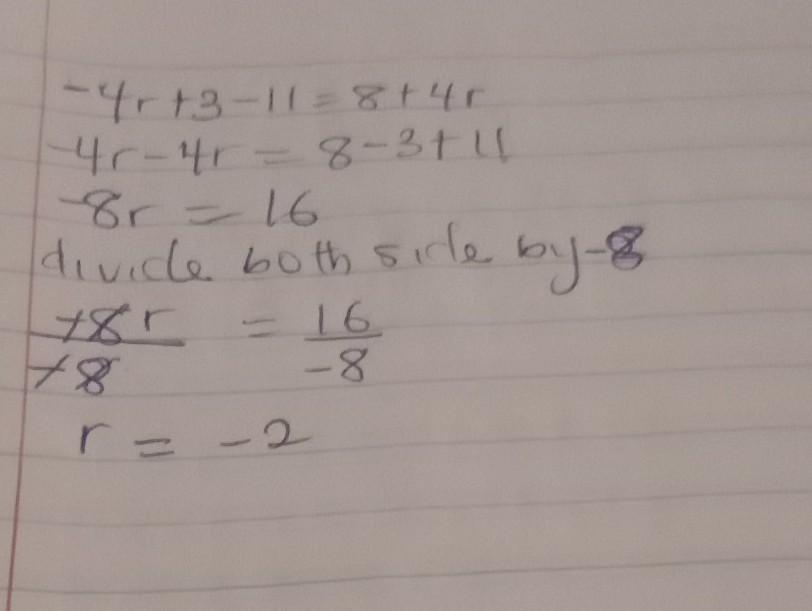 -4r+3-11=8+4r
-4r-4r=8-3+11
-8r=16
divide both side by-8
-8r/-8 = 16/-8
r=-2